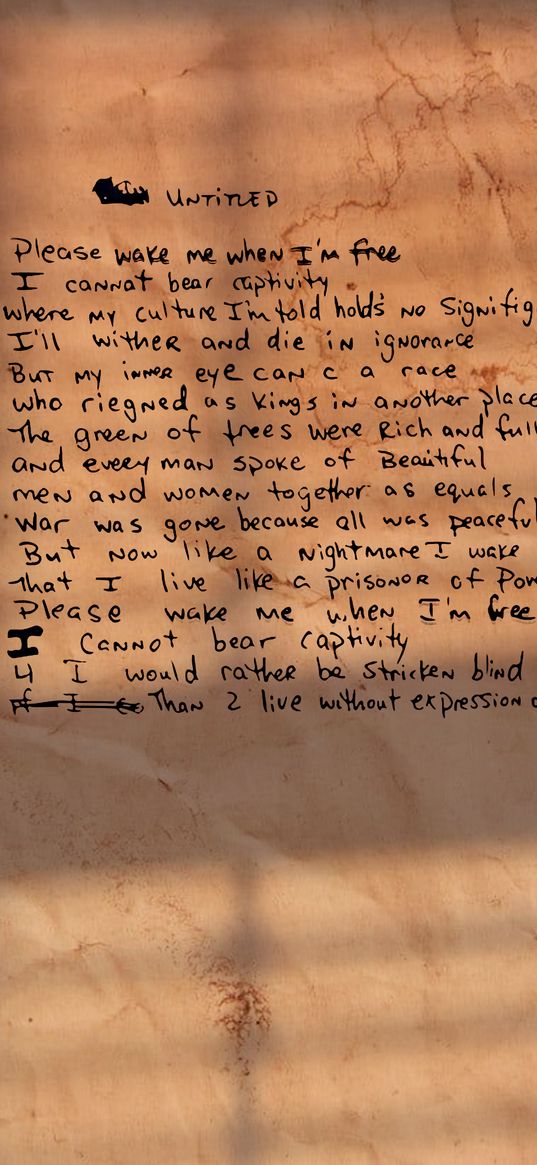 UNTITLED
Please wake me when I'm free
I cannot bear captivity
where my culture I'm told holds no Signifig
I'll wither and die in ignorance
But my inner eye can c a race
who riegned as kings in another place
The green of trees were Rich and full
and every man spoke of Beautiful
men and women together as equals
War was gone because all was peaceful
But now like a nightmare I wake
That I live like a prisonor of Pow
Please wake me when I'm free
I cannot bear captivity
4 I would rather be stricken blind
Than 2 live without expression o